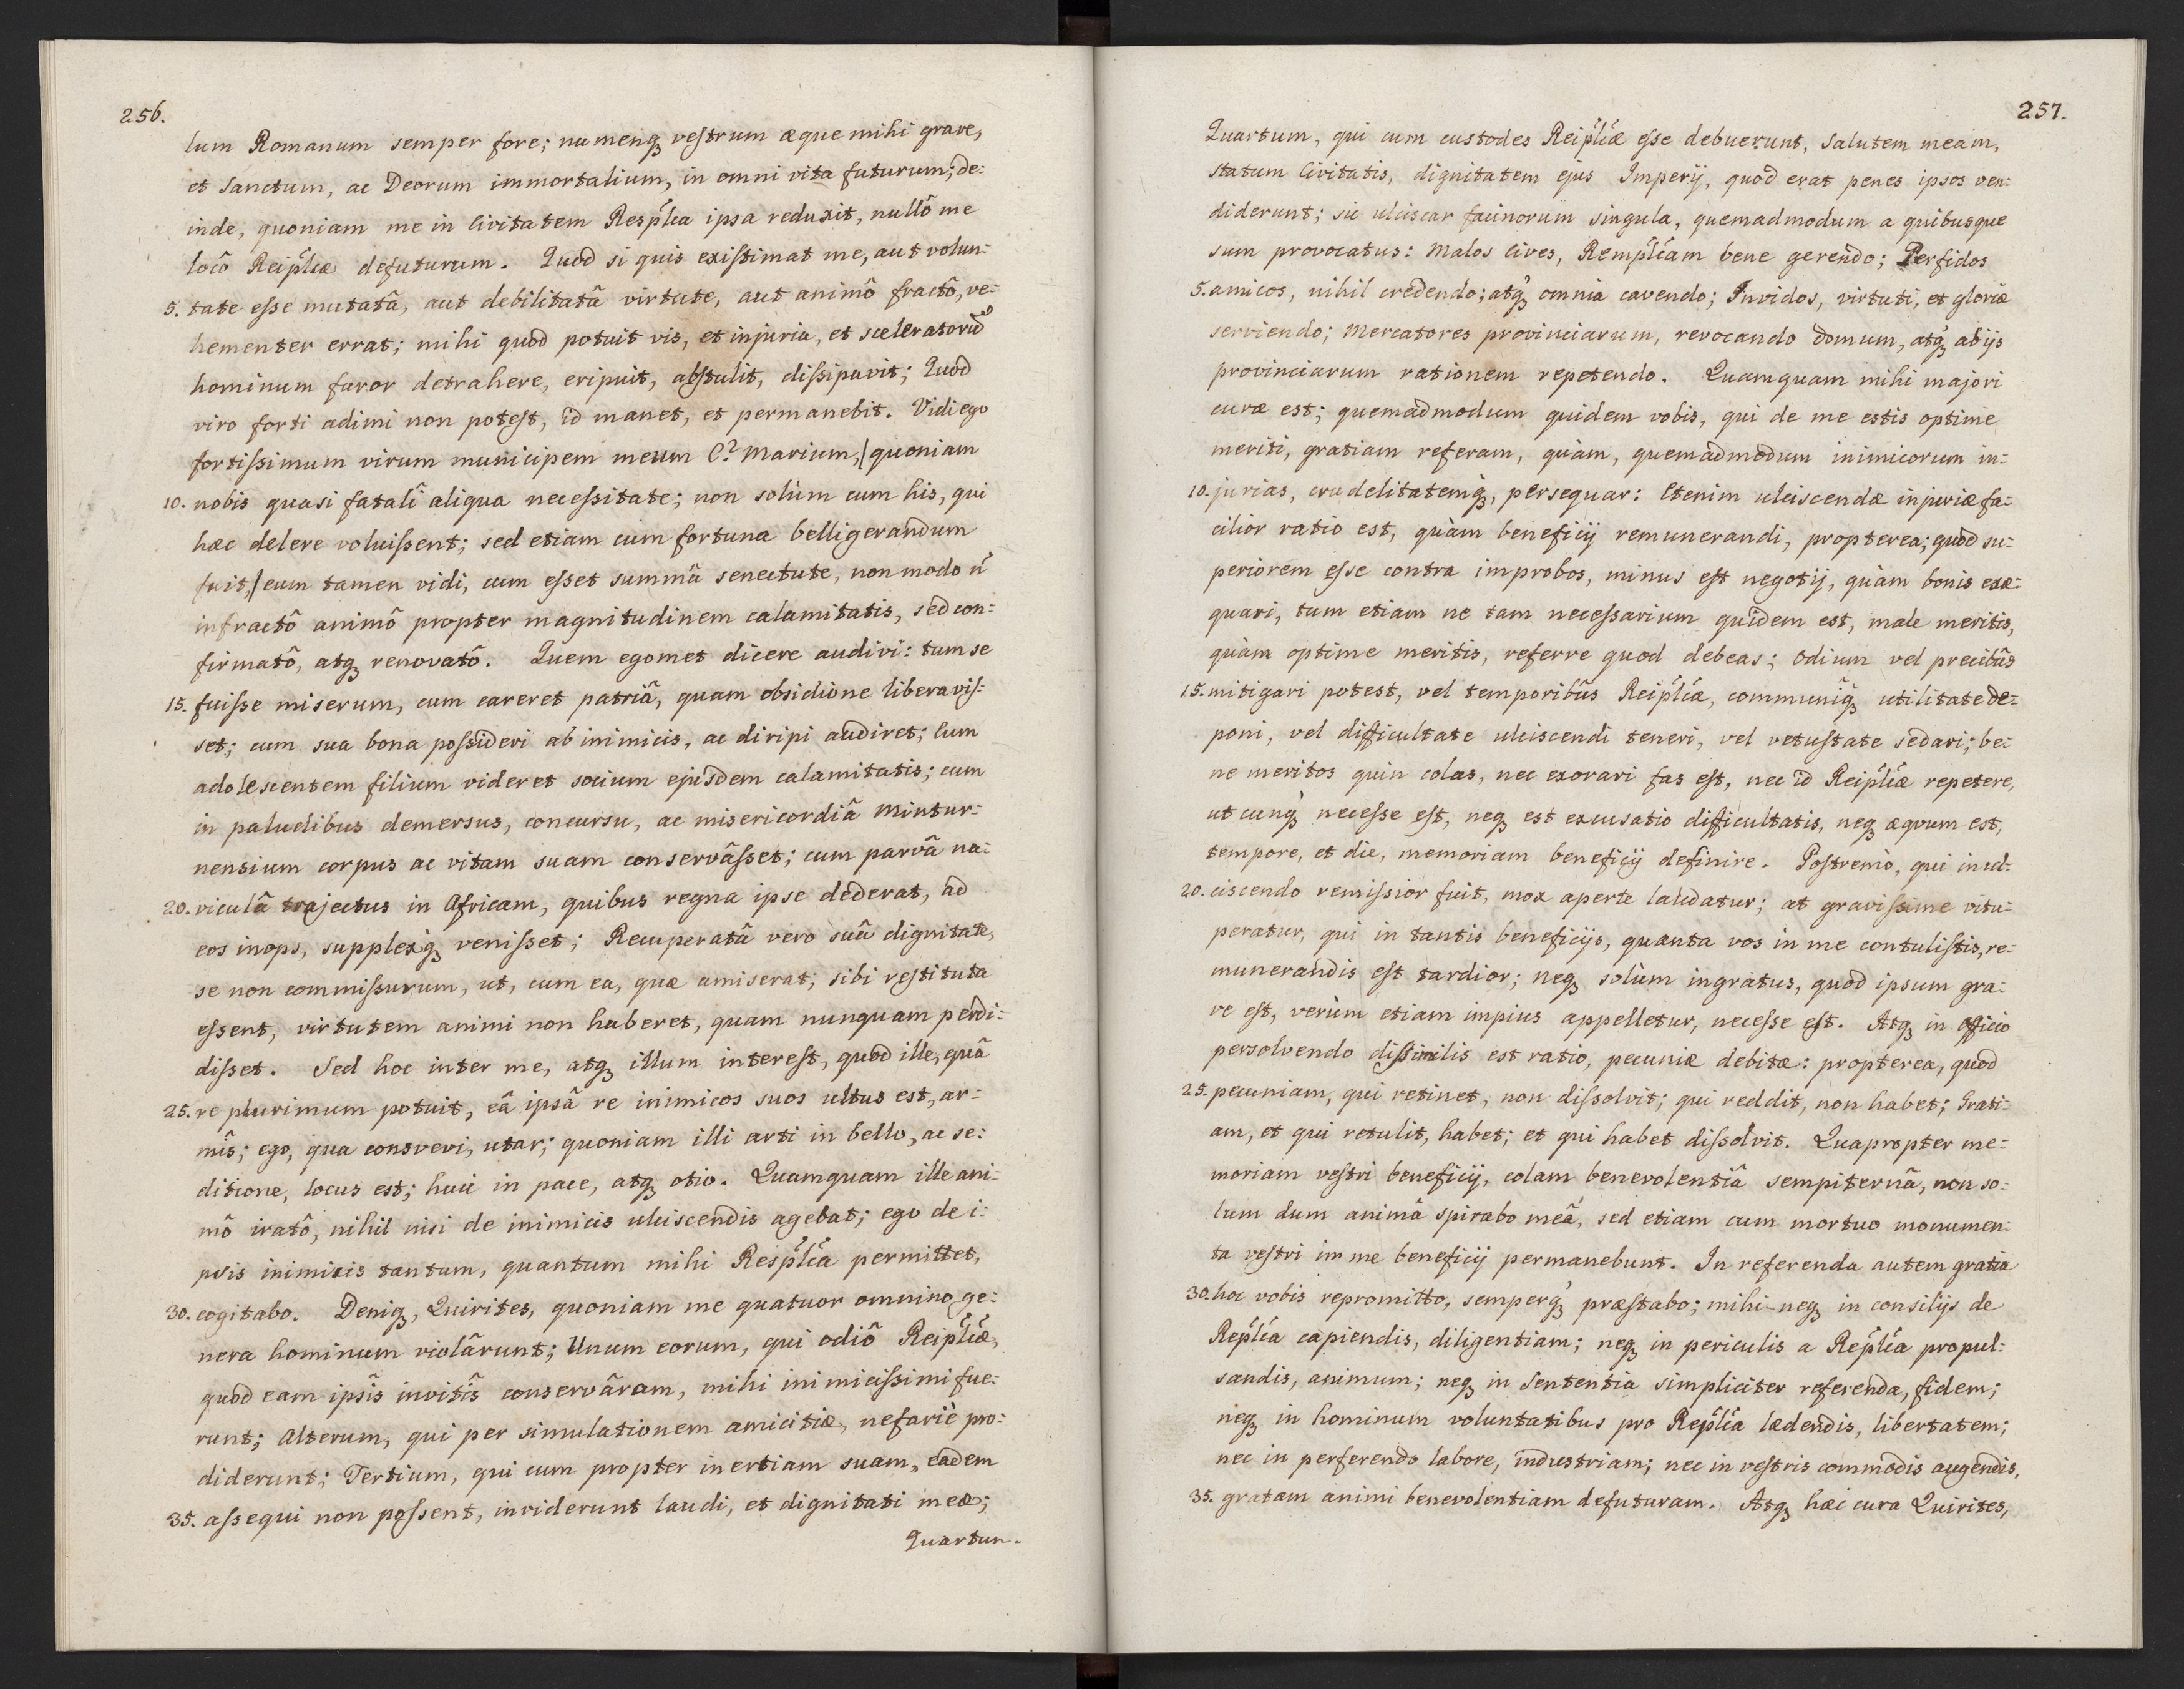 256.
lum Romanum semper fore; numenq₃ veſtrum æque mihi grave,
et Sanctum, ac Deorum immortalium, in omni vita futurum; de:
inde, quoniam me in Civitatem Respl̃ca ipsa reduxit, nullô me
locô Reipl̃cæ defuturum. Quod si quis exiſtimat me, aut volun:
5. tate eſse mutatâ, aut debilitatâ virtute, aut animô fractô, ve:
hementer errat; mihi quod potuit vis, et injuria, et sceleratorũ
hominum furor detrahere, eripuit, abſtulit, diſsipavit; Quod
viro forti adimi non poteſt, id manet, et permanebit. Vidi ego
fortiſsimum virum municipem meum C? Marium, /quoniam
10. nobis quasi fatalî aliqua neceſsitate; non solùm cum his, qui
hæc delere voluiſsent; sed etiam cum fortuna belligerandum
fuit,/ eum tamen vidi, cum eſset summâ senectute, non modo ñ
infractô animô propter magnitudinem calamitatis, sed con:
firmatô, atq₃ renovatô. Quem egomet dicere audivi: tum se
15. fuiſse miserum, cum careret patriâ, quam obsidione liberaviſ:
set; cum sua bona poſsideri ab inimicis, ac diripi audiret; Cum
adolescentem filium videret socium ejusdem calamitatis; cum
in paludibus demersus, concursu, ac misericordiâ Mintur:
nensium corpus ac vitam suam conservâſset; cum parvâ na:
20. viculâ trajectus in Africam, quibus regna ipse dederat, ad
eos inops, supplexq₃ veniſset; Recuperatâ verò suâ dignitate,
se non commiſsurum, ut, cum ea, quæ amiserat, sibi reſtituta
eſsent, virtutem animi non haberet, quam nunquam perdi:
diſset. Sed hoc inter me, atq₃ illum intereſt, quod ille, quâ
25. re plurimum potuit, eâ ipsâ re inimicos suos ultus est, ar:
mîs; ego, qua consvevi, utar; quoniam illi arti in bello, ac se:
ditione, locus est; huic in pace, atq₃ otio. Quamquam ille ani:
mô iratô, nihil nisi de inimicis ulciscendis agebat; ego de i:
psis inimicis tantum, quantum mihi Respl̃ca permittet,
30. cogitabo. Deniq₃, Quirites, quoniam me quatuor omnino ge:
nera hominum violârunt; Unum eorum, qui odiô Reipl̃cæ,
quod eam ipsîs invitîs conservâram, mihi inimiciſsimi fue:
runt; Alterum, qui per simulationem amicitiæ, nefariè pro:
diderunt; Tertium, qui cum propter inertiam suam, eadem
35. aſsequi non poſsent, inviderunt laudi, et dignitati meæ;
Quartum.
257.
Quartum, qui cum custodes Reipl̃cæ eſse debuerunt, Salutem meam,
Statum Civitatis, dignitatem ejus Imperij, quod erat penes ipsos ven:
diderunt; sic ulciscar facinorum singula, quemadmodum a quibusque
sum provocatus: Malos Cives, Rempl̃cam bene gerendo; Perfidos
5. amicos, nihil credendo; atq₃ omnia cavendo; Invidos, virtuti, et gloriæ
serviendo; Mercatores provinciarum, revocando domum, atq₃ ab ijs
provinciarum rationem repetendo. Quamquam mihi majori
curæ est; quemadmodum quidem vobis, qui de me estis optime
meriti, gratiam referam, quàm, quemadmodum inimicorum in:
10. jurias, crudelitatemq₃, persequar: Etenim ulciscendæ injuriæ fa:
cilior ratio est, quàm beneficij remunerandi, propterea; quod su:
periorem eſse contra improbos, minus eſt negotij, quàm bonis exæ:
quari, tum etiam ne tam neceſsarium quidem est, male meritis,
quàm optime meritis, referre quod debeas; Odium vel precibûs
15. mitigari potest, vel temporibûs Reipl̃cæ, communiq₃ utilitate de:
poni, vel difficultate ulciscendi teneri, vel vetuſtate sedari; be:
ne meritos quin colas, nec exorari fas eſt, nec id Reipl̃cæ repetere,
utcunq₃ neceſse eſt, neq₃ est excusatio difficultatis, neq₃ æqvum est,
tempore, et die, memoriam beneficij definire. Poſtremò, qui in ul:
20. ciscendo remiſsior fuit, mox aperte laudatur; at graviſsime vitu:
peratur, qui in tantis beneficijs, quanta vos in me contuliſtis, re:
munerandis eſt tardior; neq₃ solùm ingratus, quod ipsum gra:
ve eſt, verùm etiam impius appelletur, neceſse eſt. Atq₃ in officio
persolvendo diſsimilis est ratio, pecuniæ debitæ: propterea, quod
25. pecuniam, qui retinet, non diſsolvit; qui reddit, non habet; Grati:
am, et qui retulit, habet; et qui habet diſsolvit. Quapropter me:
moriam veſtri beneficij, colam benevolentiâ sempiternâ, non so:
lum dum animâ spirabo meâ, sed etiam cum mortuo monumen:
ta veſtri in me beneficij permanebunt. In referenda autem gratia
30. hoc vobis repromitto, semperq₃ præſtabo; mihi neq₃ in consilijs de
Repl̃ca capiendis, diligentiam; neq₃ in periculis a Repl̃ca propul:
sandis, animum; neq₃ in Sententia simpliciter referenda, fidem;
neq₃ in hominum voluntatibus pro Repl̃ca lædendis, libertatem;
nec in perferendo labore, industriam; nec in veſtris commodis augendis,
35. gratam animi benevolentiam defuturam. Atq₃ hæc cura Quirites,